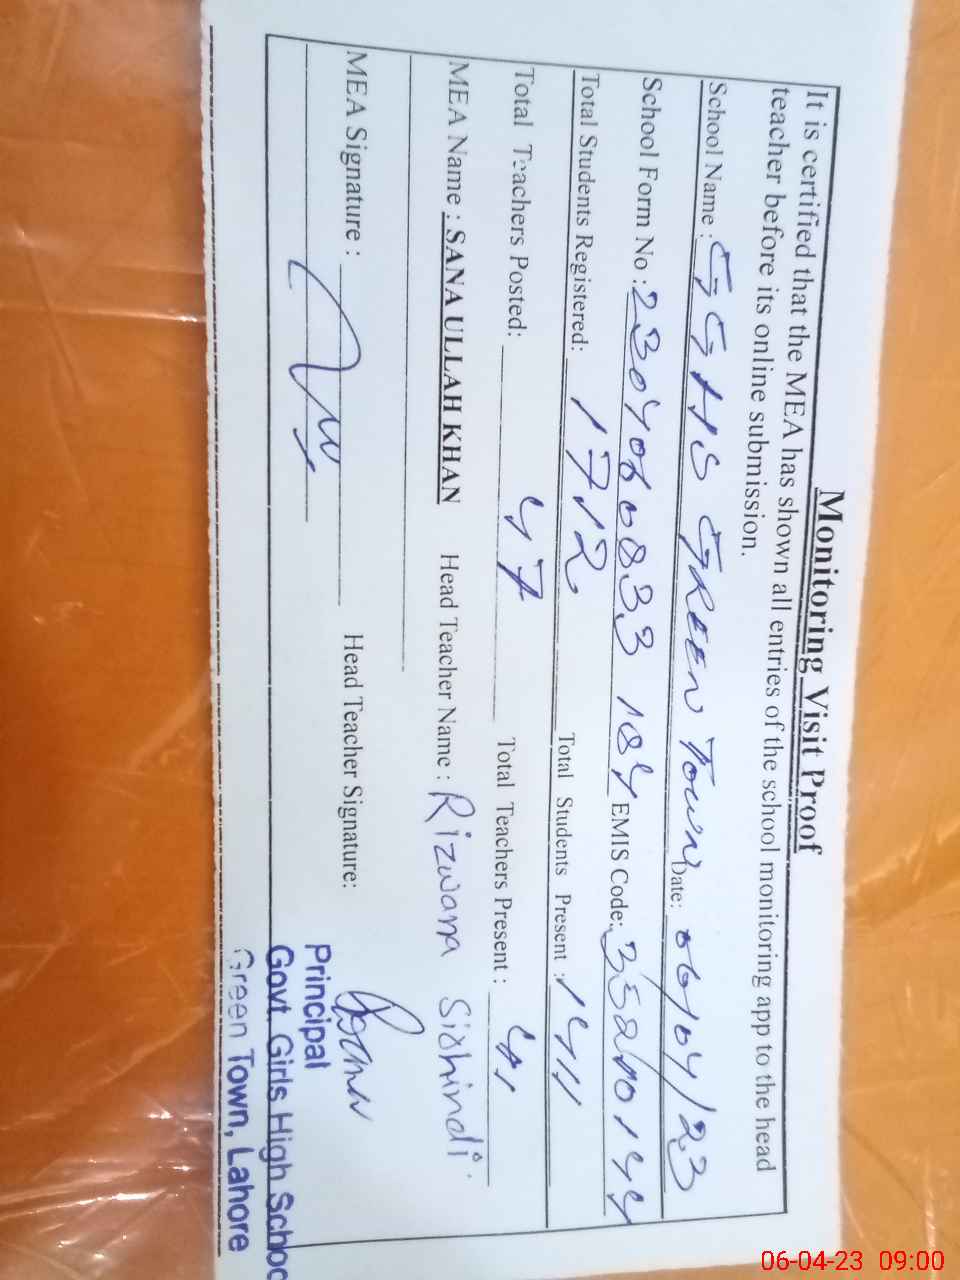 Monitoring Visit Proof
It is certified that the MEA has shown all entries of the school monitoring app to the head
teacher before its online submission.
School Name : GGHS GREEN TOWN Date: 06/04/23
School Form No : 2304060833 184 EMIS Code: 35210144
Total Students Registered: 1712 Total Students Present : 1411
Total Teachers Posted: 47 Total Teachers Present : 41
MEA Name : SANA ULLAH KHAN Head Teacher Name : Rizwana Sirhindi
MEA Signature : Head Teacher Signature:
Principal
Govt. Girls High Schoo
Green Town, Lahore
06-04-23 09:00